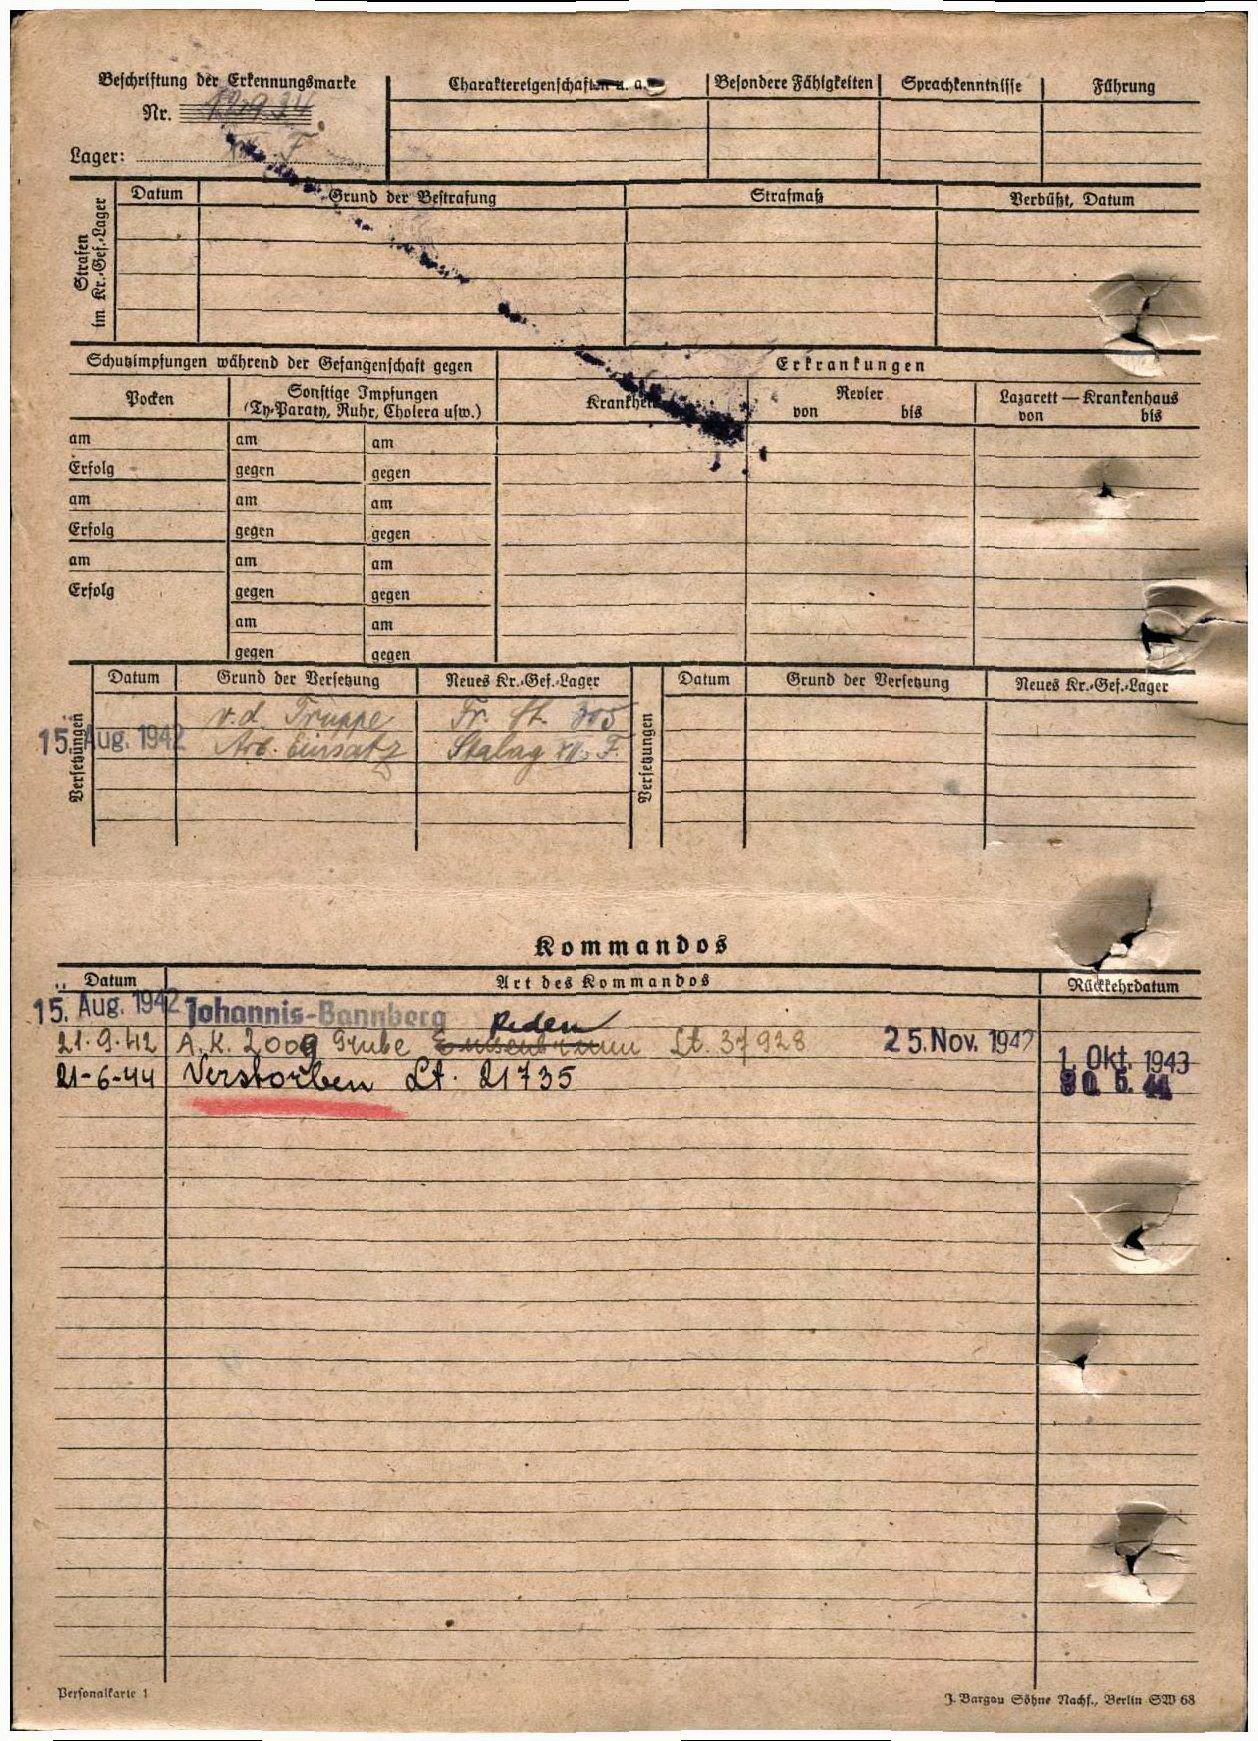 Beschriftung der Erkennungsmarke
Nr.
Lager:
Charaktereigenschaften u. a. Besondere Fähigkeiten Sprachkenntnisse Führung
Strafen im Kr.-Gef.-Lager
Datum Grund der Bestrafung Strafmaß Verbüßt, Datum
Schutzimpfungen während der Gefangenschaft gegen Erkrankungen
Pocken Sonstige Impfungen (Ty-Paraty, Ruhr, Cholera usw.) Krankheit Revier von bis Lazarett — Krankenhaus von bis
am am am
Erfolg gegen gegen
am am am
Erfolg gegen gegen
am am am
Erfolg gegen gegen
am am
gegen gegen
Versetzungen Datum Grund der Versetzung Neues Kr.-Gef.-Lager Versetzungen Datum Grund der Versetzung Neues Kr.-Gef.-Lager
v. d. Truppe Fr. St.
15. Aug. 1942 Arb. Einsatz Stalag XII. F.
Kommandos
Datum Art des Kommandos Rückkehrdatum
15. Aug. 1942 Johannis-Bannberg
Reden
21.9.42 A.K. 2009 Grube Lt. 37928 25. Nov. 1942 1. Okt. 1943
21-6-44 Verstorben Lt. 21735 30. 5. 44
Personalkarte 1
J. Bargou Söhne Nachf., Berlin SW 68